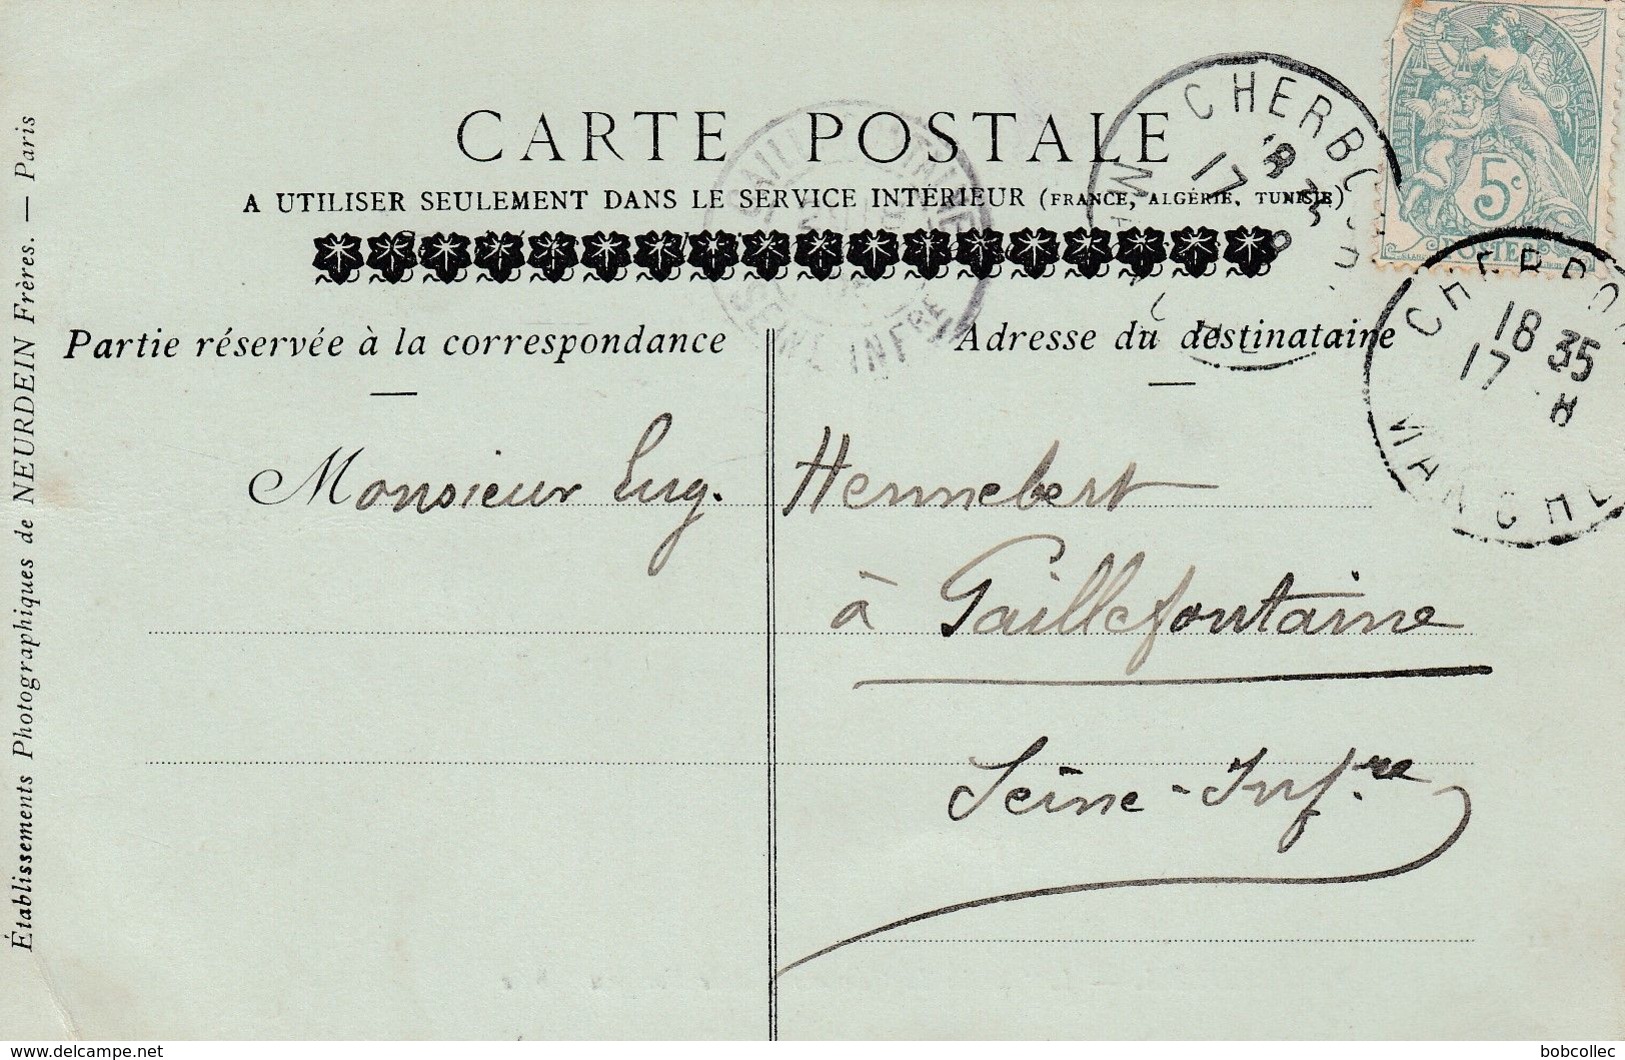 CARTE POSTALE
A UTILISER SEULEMENT DANS LE SERVICE INTÉRIEUR (FRANCE, ALGÉRIE, TUNISIE)
Partie réservée à la correspondance
Adresse du destinataire
Monsieur Eug. Hennebert
à Gaillefontaine
Seine-Inf.re
Établissements Photographiques de NEURDEIN Frères. — Paris
5c
POSTES
CHERBOURG
17
MANCHE
CHERBOURG
18 35
17 8
MANCHE
SEINE INFRE
delcampe.net
bobcollec